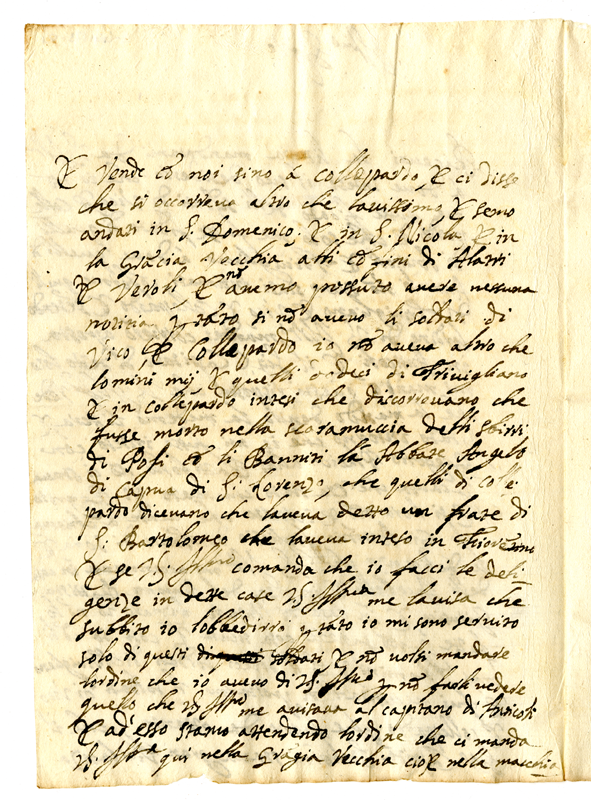 & Vende cō noi sino a collepardo, & ci disse
che si occorreva altro che lavissimo, & semo
andati in S. Domenico, & in S. Nicola & in
la Gracia Vecchia alli cōfini di Alatri
& Veroli, & nō avemo possuto avere nessuna
notitia, p tāto si nō avevo li soldati di
Vico, & Collepardo io nō aveva altro che
lomini mij & quelli dodeci di Trivigliano
& in collepardo intesi che discorrevano che
fusse morto nella scaramuccia delli sbirri
di Pofi cō li Banniti la Abbate Angelo
di Capua di S. Lorenzo, che quelli di Colle
pardo dicevano che laveva detto un frate di
S. Bartolomeo che laveva inteso in
& se VS. Illma comanda che io facci le deli
genze in dette case VS. Illma me lavisa che
subbito io lobbedirrò p tāto io mi sono servuto
solo di questi soldati & nō volsi mandare
lordine che io avevo di VS. Illma p nō farli vedere
quello che VS Illma me avisava al capitano di
& ad'esso stamo attendendo lordine che ci manda
VS. Illma qui nella Gragia Vecchia cioè nella macchia